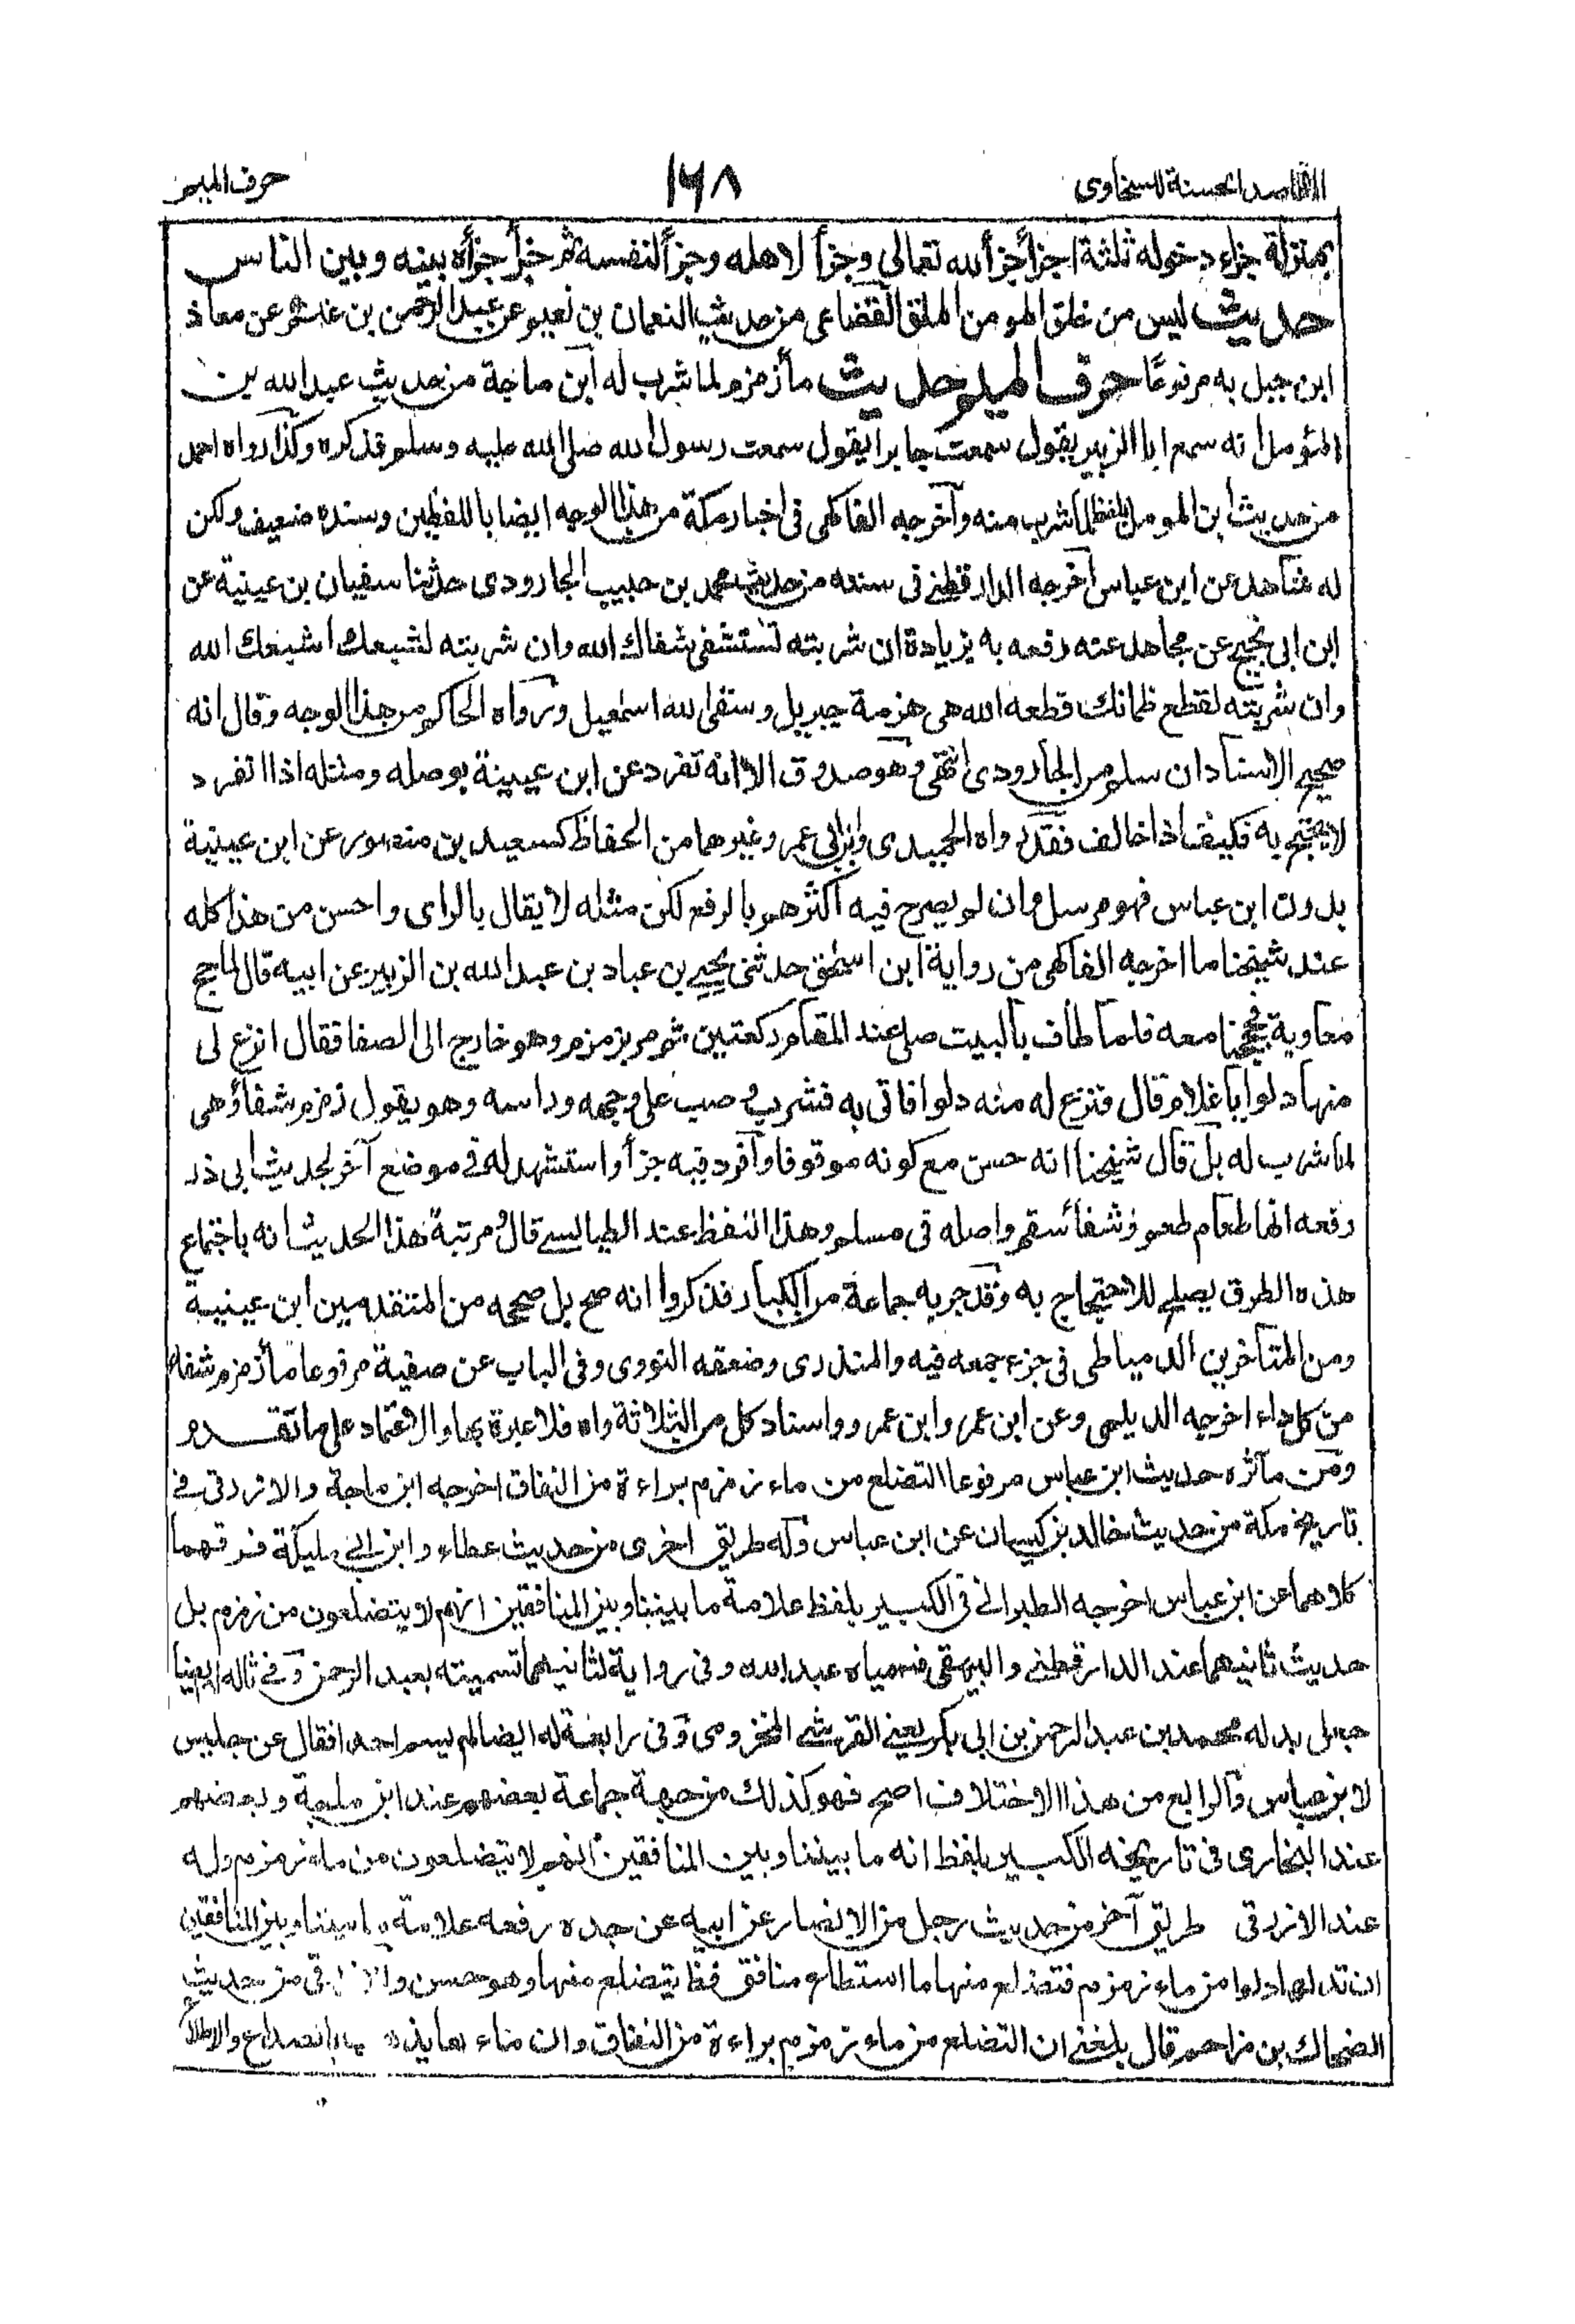 المقاصد الحسنة للسخاوى
١٦٨
حرف الميم
بمنزلة جزاء دخوله ثلثة اجزأ جزأ لله تعالى وجزأ لاهله وجزأ لنفسه ثم جزأ جزأه بينه وبين الناس
حديث ليس من خلق المومن الملق القضاعى من حديث النعمان بن نعيم عن عبد الرحمن بن غنم عن معاذ
ابن جبل به مرفوعًا حرف الميم حديث مأزمزم لما شرب له ابن ماجة من حديث عبد الله بن
المؤمل انه سمع ابا الزبير يقول سمعت جابرا يقول سمعت رسول الله صلى الله عليه وسلم فذكره وكذا رواه احمد
من حديث ابن المومل بلفظ لما شرب منه وآخرجه الفاكهى فى اخبار مكة من هذا الوجه ايضا باللفظين وسنده ضعيف ولكن
له شاهد عن ابن عباس آخرجه الدارقطنى فى سننه من حديث محمد بن حبيب الجارودى حدثنا سفيان بن عيينة عن
ابن ابى نجيح عن مجاهد عنه رفعه به بزيادة ان شربته تستشفى شفاك الله وان شربته لشبعك اشبعك الله
وان شربته لقطع ظمائك قطعه الله هى هزمة جبريل وسقى الله اسمعيل ورواه الحاكم من هذا الوجه وقال انه
صحيح الاسناد ان سلم من الجارودى انتهى وهو صدوق الا انه تفرد عن ابن عيينة بوصله ومثله اذا انفرد
لا يحتج به فكيف اذا خالف فقد رواه الحميدى وابن ابى عمر وغيرهما من الحفاظ كسعيد بن منصور عن ابن عيينة
بدون ابن عباس فهو مرسل وان لم يصرح فيه اكثرهم بالرفع لكن مثله لا يقال بالراى واحسن من هذا كله
عند شيخنا ما اخرجه الفاكهى من رواية ابن اسحٰق حدثنى يحيى بن عباد بن عبد الله بن الزبير عن ابيه قال لما حج
معاوية فحججنا معه فلما طاف بالبيت صلى عند المقام ركعتين ثم مر بزمزم وهو خارج الى الصفا فقال انزع لى
منها دلوا يا غلام قال فنزع له منه دلوا فاتى به فشرب وصب على وجهه وراسه وهو يقول زمزم شفاؤهى
لما شرب له بل قال شيخنا انه حسن مع كونه موقوفا وآفرد فيه جزأ واستشهد له فى موضع آخر بحديث ابى ذر
رفعه انها طعام طعم وشفأ سقم واصله فى مسلم وهذا اللفظ عند الطيالسى قال ومرتبة هذا الحديث انه باجتماع
هذه الطرق يصلح للاحتجاج به وقد جربه جماعة من الكبار فذكروا انه صح بل صححه من المتقدمين ابن عيينة
ومن المتأخرين الدمياطى فى جزء جمعه فيه والمنذرى وضعفه النووى وفى الباب عن صفية مرفوعا مأزمزم شفاء
من كل داء اخرجه الديلمى وعن ابن عمر وابن عمرو واسناد كل من الثلاثة واه فلا عبرة بها والاعتماد على ما تقدم
ومن مآثره حديث ابن عباس مرفوعا التضلع من ماء زمزم براءة من النفاق اخرجه ابن ماجة والازرقى فى
تاريخ مكة من حديث خالد بن كيسان عن ابن عباس وله طريق اخرى من حديث عطاء وابن ابى مليكة فرقهما
كلاهما عن ابن عباس اخرجه الطبرانى فى الكبير بلفظ علامة ما بيننا وبين المنافقين انهم لا يتضلعون من زمزم بل
حديث ثانيهما عند الدارقطنى والبيهقى فسمياه عبد الله وفى رواية لثانيهما تسميته بعبد الرحمن وفى ثالثه ايضا
جعل بدله محمد بن عبد الرحمن بن ابى بكر يعنى القرشى المخزومى وفى رابعة له ايضا لم يسم احدا فقال عن جليس
لابن عباس والرابع من هذا الاختلاف اصح فهو كذلك من جهة جماعة بعضهم عند ابن ماجة وبعضهم
عند البخارى فى تاريخه الكبير بلفظ انه ما بيننا وبين المنافقين انهم لا يتضلعون من ماء زمزم وله
عند الازرقى طريق آخر من حديث رجل من الانصار عن ابيه عن جده رفعه علامة ما بيننا وبين المنافقين
ان تدلوا دلوا من ماء زمزم فتضلع منها ما استطاع منافق قط يتضلع منها وهو حسن و من حديث
الضحاك بن مزاحم قال بلغنى ان التضلع من ماء زمزم براءة من النفاق وان ماءها يذهب بالصداع والاطلاع